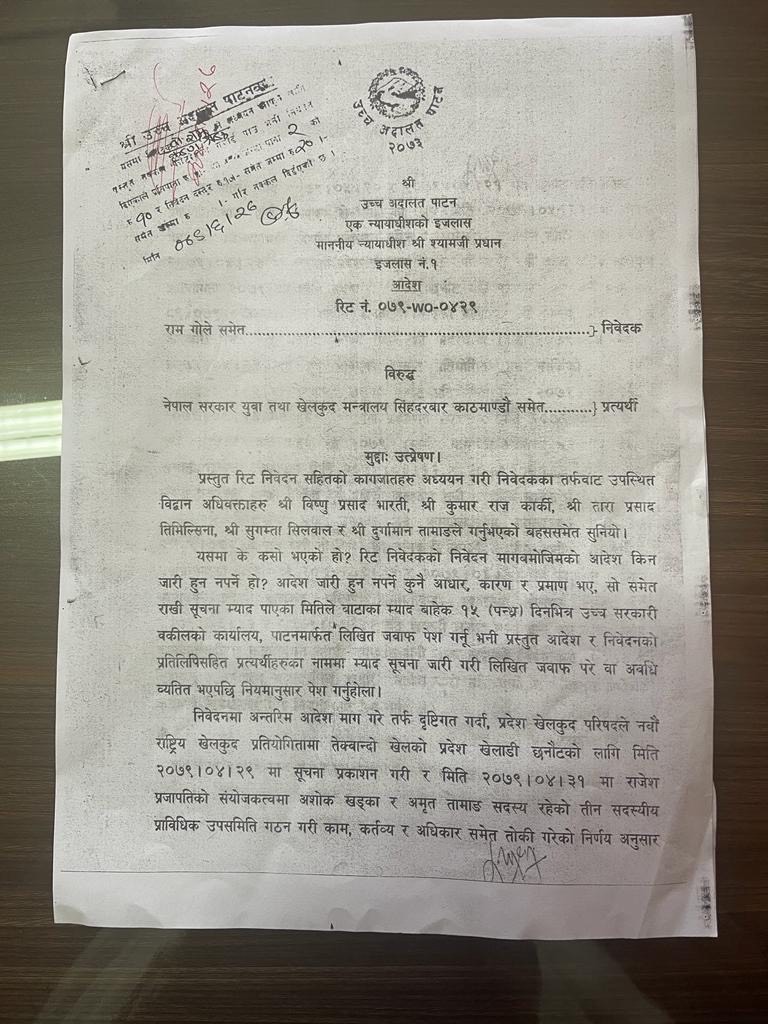 श्री उच्च अदालत पाटनबाट
उच्च अदालत पाटन
२०७३
श्री
उच्च अदालत पाटन
एक न्यायाधीशको इजलास
माननीय न्यायाधीश श्री श्यामजी प्रधान
इजलास नं.१
आदेश
रिट नं. ०७९-WO-०४२९
राम गोले समेत.......................................................................................} निवेदक
विरुद्ध
नेपाल सरकार युवा तथा खेलकुद मन्त्रालय सिंहदरबार काठमाण्डौ समेत...........} प्रत्यर्थी
मुद्दाः उत्प्रेषण।
प्रस्तुत रिट निवेदन सहितको कागजातहरु अध्ययन गरी निवेदकका तर्फबाट उपस्थित
विद्वान अधिवक्ताहरु श्री विष्णु प्रसाद भारती, श्री कुमार राज कार्की, श्री तारा प्रसाद
तिमिल्सिना, श्री सुगम्ता सिलवाल र श्री दुर्गामान तामाङले गर्नुभएको बहससमेत सुनियो।
यसमा के कसो भएको हो? रिट निवेदकको निवेदन मागबमोजिमको आदेश किन
जारी हुन नपर्ने हो? आदेश जारी हुन नपर्ने कुनै आधार, कारण र प्रमाण भए, सो समेत
राखी सूचना म्याद पाएका मितिले बाटाका म्याद बाहेक १५ (पन्ध्र) दिनभित्र उच्च सरकारी
वकीलको कार्यालय, पाटनमार्फत लिखित जवाफ पेश गर्नू भनी प्रस्तुत आदेश र निवेदनको
प्रतिलिपिसहित प्रत्यर्थीहरुका नाममा म्याद सूचना जारी गरी लिखित जवाफ परे वा अवधि
व्यतित भएपछि नियमानुसार पेश गर्नुहोला।
निवेदनमा अन्तरिम आदेश माग गरे तर्फ दृष्टिगत गर्दा, प्रदेश खेलकुद परिषदले नवौं
राष्ट्रिय खेलकुद प्रतियोगितामा तेक्वान्दो खेलको प्रदेश खेलाडी छनौटको लागि मिति
२०७९।०४।२९ मा सूचना प्रकाशन गरी र मिति २०७९।०४।३१ मा राजेश
प्रजापतिको संयोजकत्वमा अशोक खड्का र अमृत तामाङ सदस्य रहेको तीन सदस्यीय
प्राविधिक उपसमिति गठन गरी काम, कर्तव्य र अधिकार समेत तोकी गरेको निर्णय अनुसार